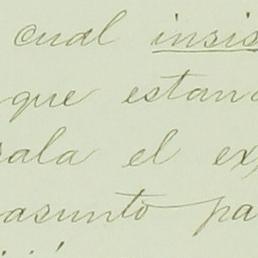 cual insis
que estan
ala el ex
asunto pa